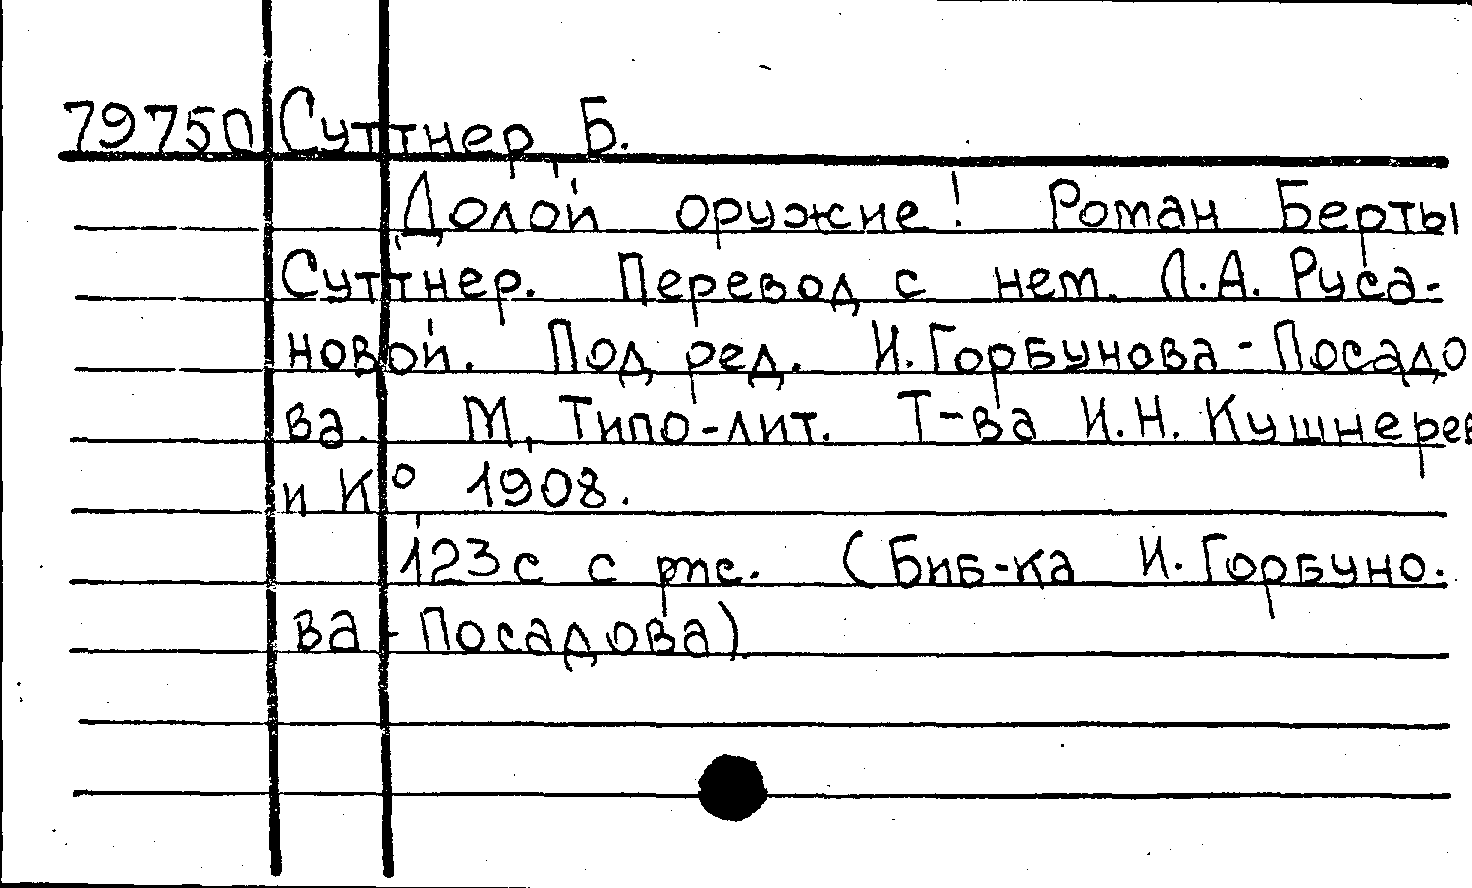 79750 Суттнер, Б.
Долой оружие! Роман Берты
Суттнер. Перевод с нем. Л.А. Руса-
новой. Под ред. И. Горбунова-Посадо
ва. М, Типо-лит. Т-ва И.Н. Кушнерев
и К° 1908.
123 с с рис. (Биб-ка И. Горбуно-
ва-Посадова)